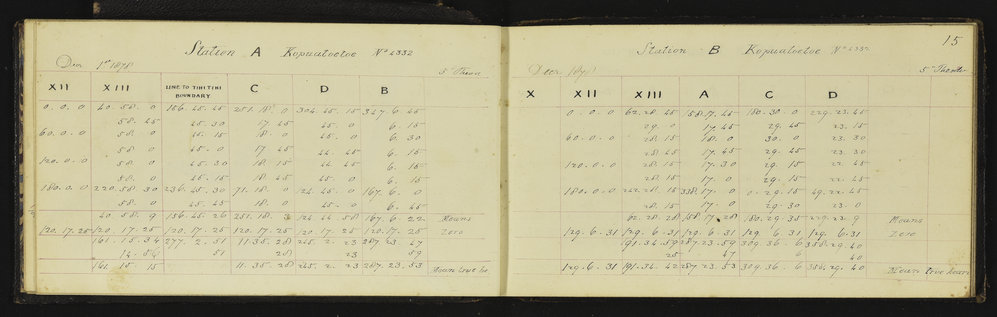 Station A Kopuatoetoe No 4332
Decr 1st 1878
5" Theod
XII XIII LINE TO TIHI TIHI BOUNDARY C D B
0. 0. 0 40. 58. 0 156. 45. 45 251. 18. 0 304. 45. 15 347. 6. 45
58. 45 45. 30 17. 45 45. 0 6. 15
60. 0. 0 58. 0 45. 15 18. 0 45. 0 6. 30
58. 0 45. 0 17. 45 44. 45 6. 15
120. 0. 0 58. 0 45. 30 18. 15 44. 45 6. 15
58. 0 45. 15 18. 45 45. 0 6. 15
180. 0. 0 220. 58. 30 236. 45. 30 71. 18. 0 24. 45. 0 167. 6. 0
58. 45 45. 45 18. 0 45. 0 6. 45
40. 58. 9 156. 45. 26 251. 18. 3 124. 44. 58 167. 6. 22 Means
120. 17. 25 120. 17. 25 120. 17. 25 120. 17. 25 120. 17. 25 120. 17. 25 Zero
161. 15. 34 277. 2. 51 11. 35. 28 245. 2. 23 287. 23. 47
14. 56 51 28 23 59
161. 15. 15 11. 35. 28 245. 2. 23 287. 23. 53 Mean true
15
Station B Kopuatoetoe No 4332
Decr 1878
5" Theodo
X XII XIII A C D
0. 0. 0 62. 28. 45 158. 17. 45 180. 30. 0 229. 23. 45
29. 0 17. 45 29. 45 23. 15
60. 0. 0 28. 45 17. 0 30. 0 23. 30
28. 45 17. 45 29. 45 23. 30
120. 0. 0 28. 15 17. 30 29. 15 22. 45
28. 15 17. 0 29. 15 22. 45
180. 0. 0 242. 28. 15 338. 17. 0 0. 29. 15 49. 22. 45
28. 15 17. 0 29. 30 23. 0
62. 28. 28 158. 17. 28 180. 29. 35 229. 23. 9 Means
129. 6. 31 129. 6. 31 129. 6. 31 129. 6. 31 129. 6. 31 Zero
191. 34. 59 287. 23. 59 309. 36. 6 358. 29. 40
25 47 6 40
129. 6. 31 191. 34. 42 287. 23. 53 309. 36. 6 358. 29. 40 Mean true bears